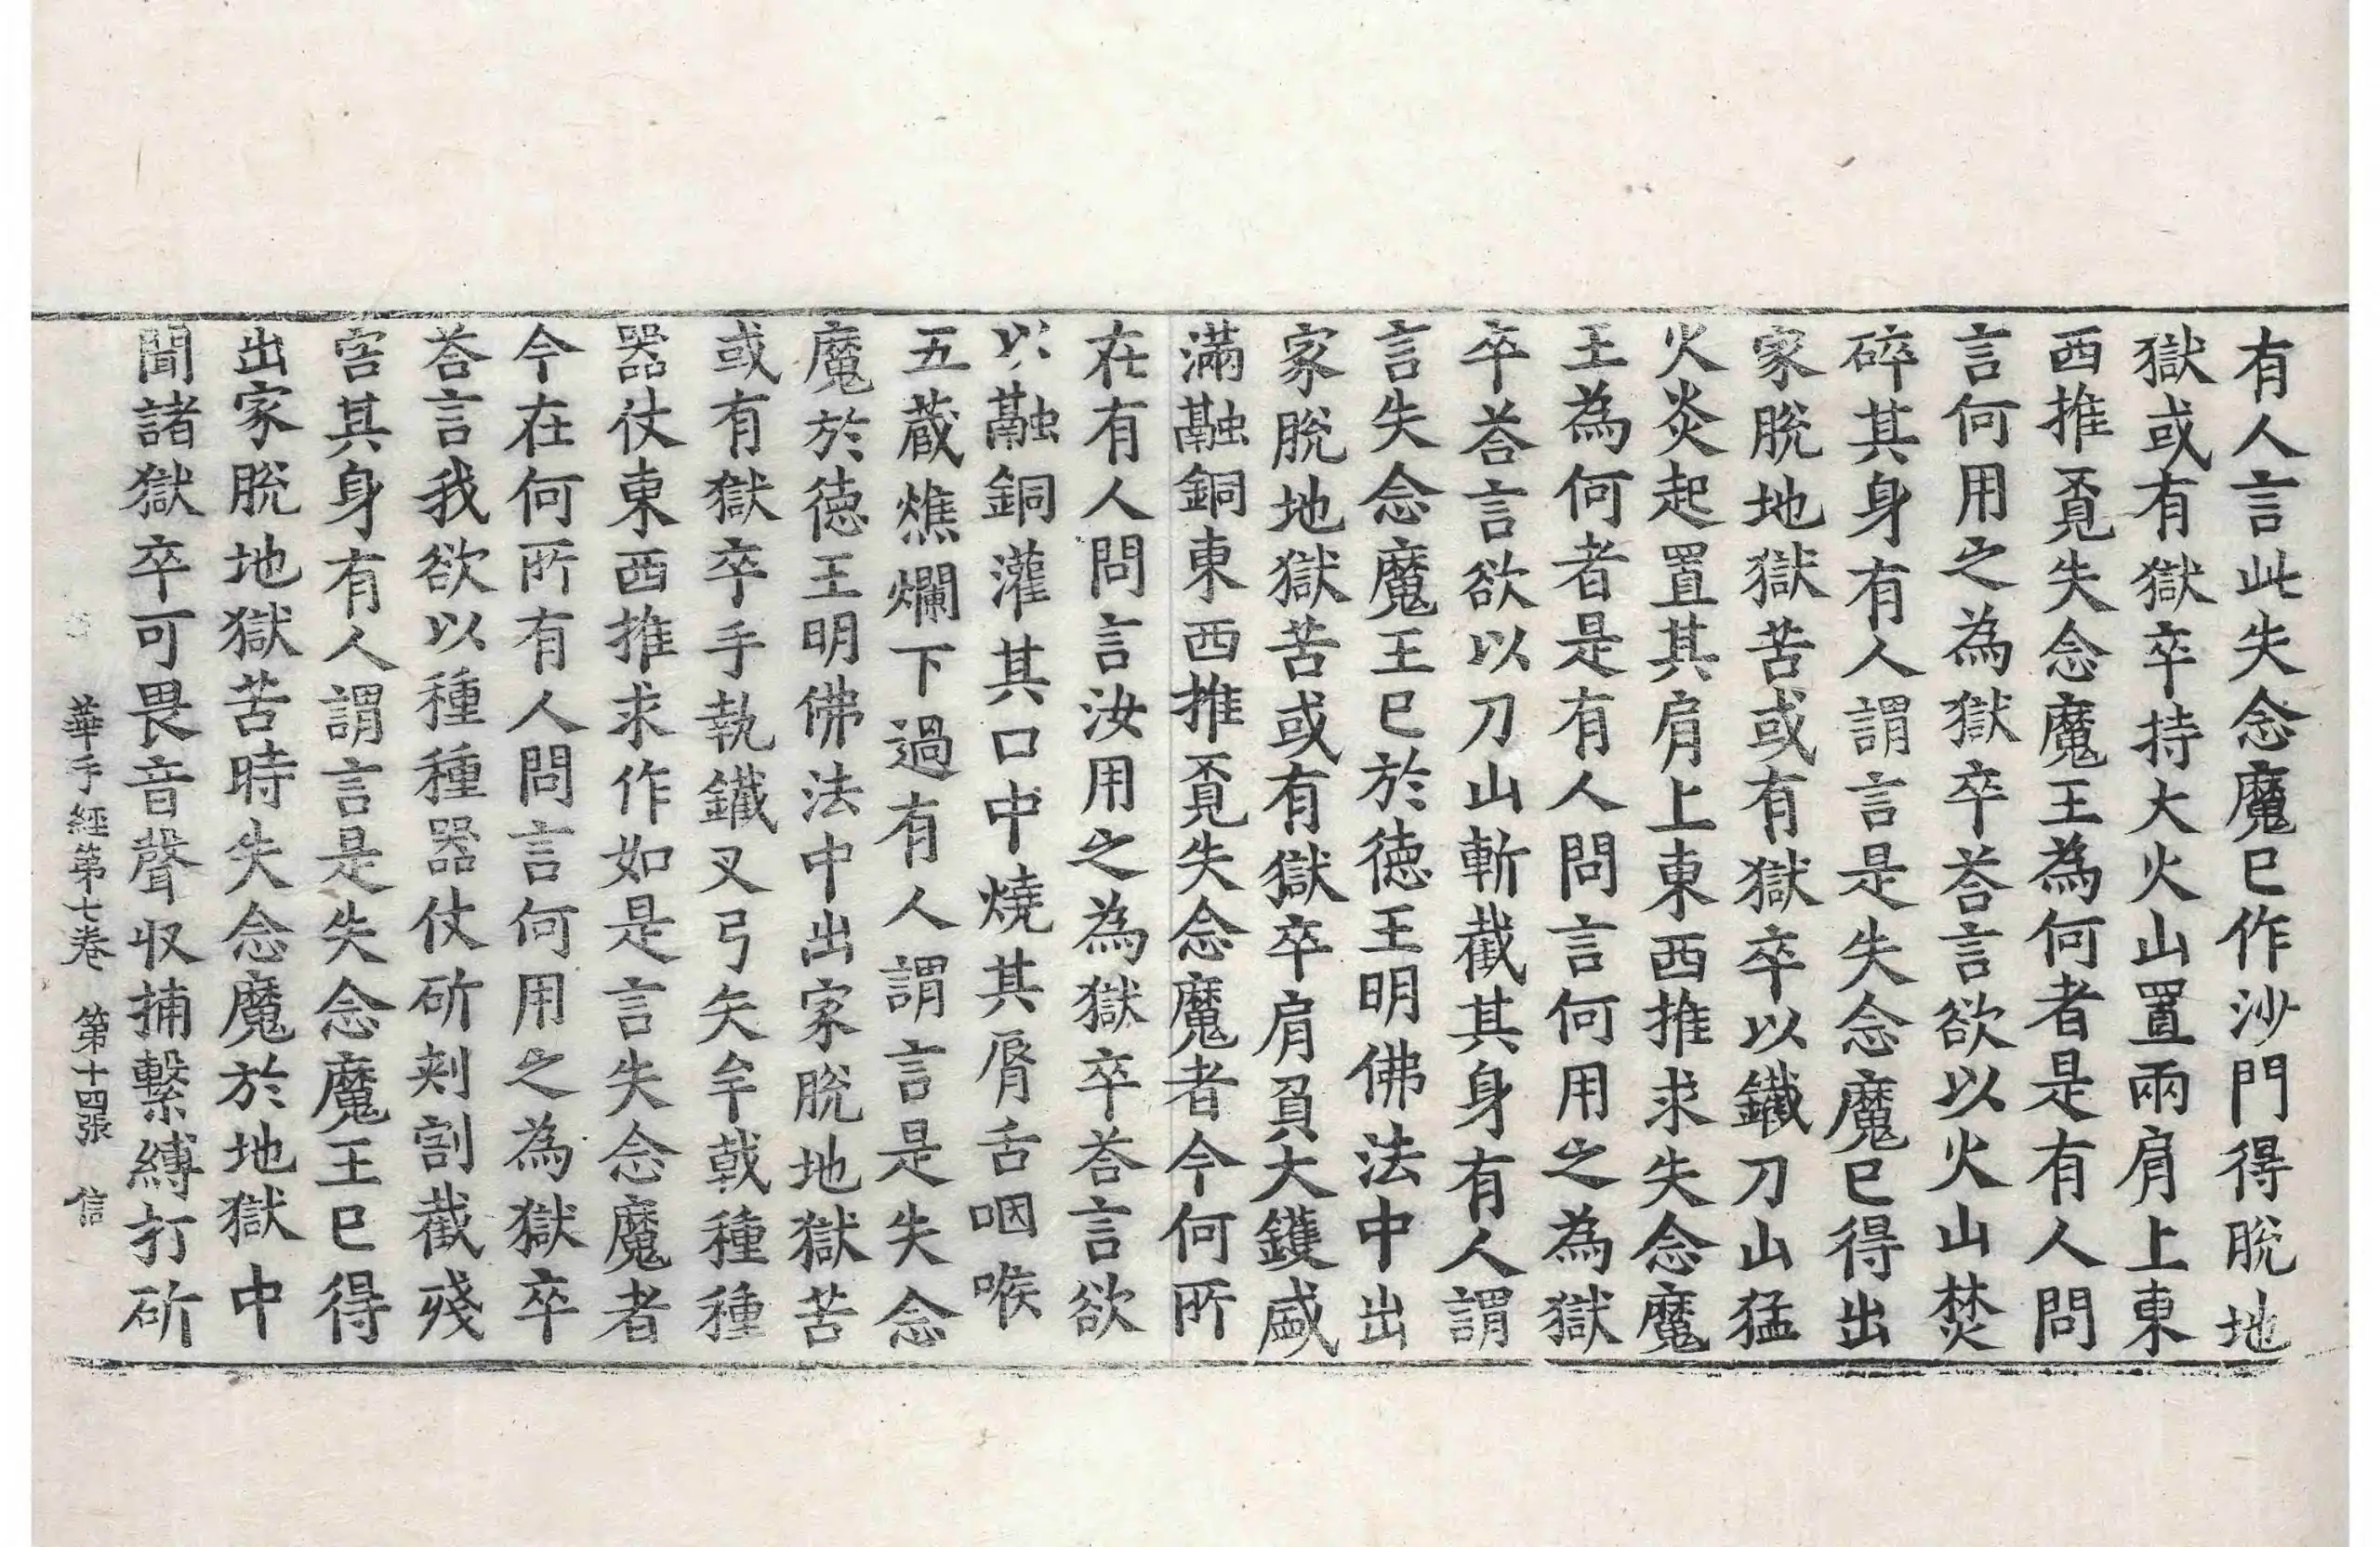 有人言此失念魔已作沙門得脫地
獄或有獄卒持大火山置兩肩上東
西推覔失念魔王為何者是有人問
言何用之為獄卒荅言欲以火山焚
碎其身有人謂言是失念魔已得出
家脫地獄苦或有獄卒以鐵刀山猛
火炎起置其肩上東西推求失念魔
王為何者是有人問言何用之為獄
卒荅言欲以刀山斬截其身有人謂
言失念魔王已於德王明佛法中出
家脫地獄苦或有獄卒肩負大鑊盛
滿融銅東西推覔失念魔者今何所
在有人問言汝用之為獄卒荅言欲
以融銅灌其口中燒其脣舌咽喉
五藏燋爛下過有人謂言是失念
魔於德王明佛法中出家脫地獄苦
或有獄卒手執鐵叉弓矢牟戟種種
器仗東西推求作如是言失念魔者
今在何所有人問言何用之為獄卒
荅言我欲以種種器仗斫刺割截殘
害其身有人謂言是失念魔王已得
出家脫地獄苦時失念魔於地獄中
聞諸獄卒可畏音聲收捕繫縛打斫
華手經第七卷 第十四張 信